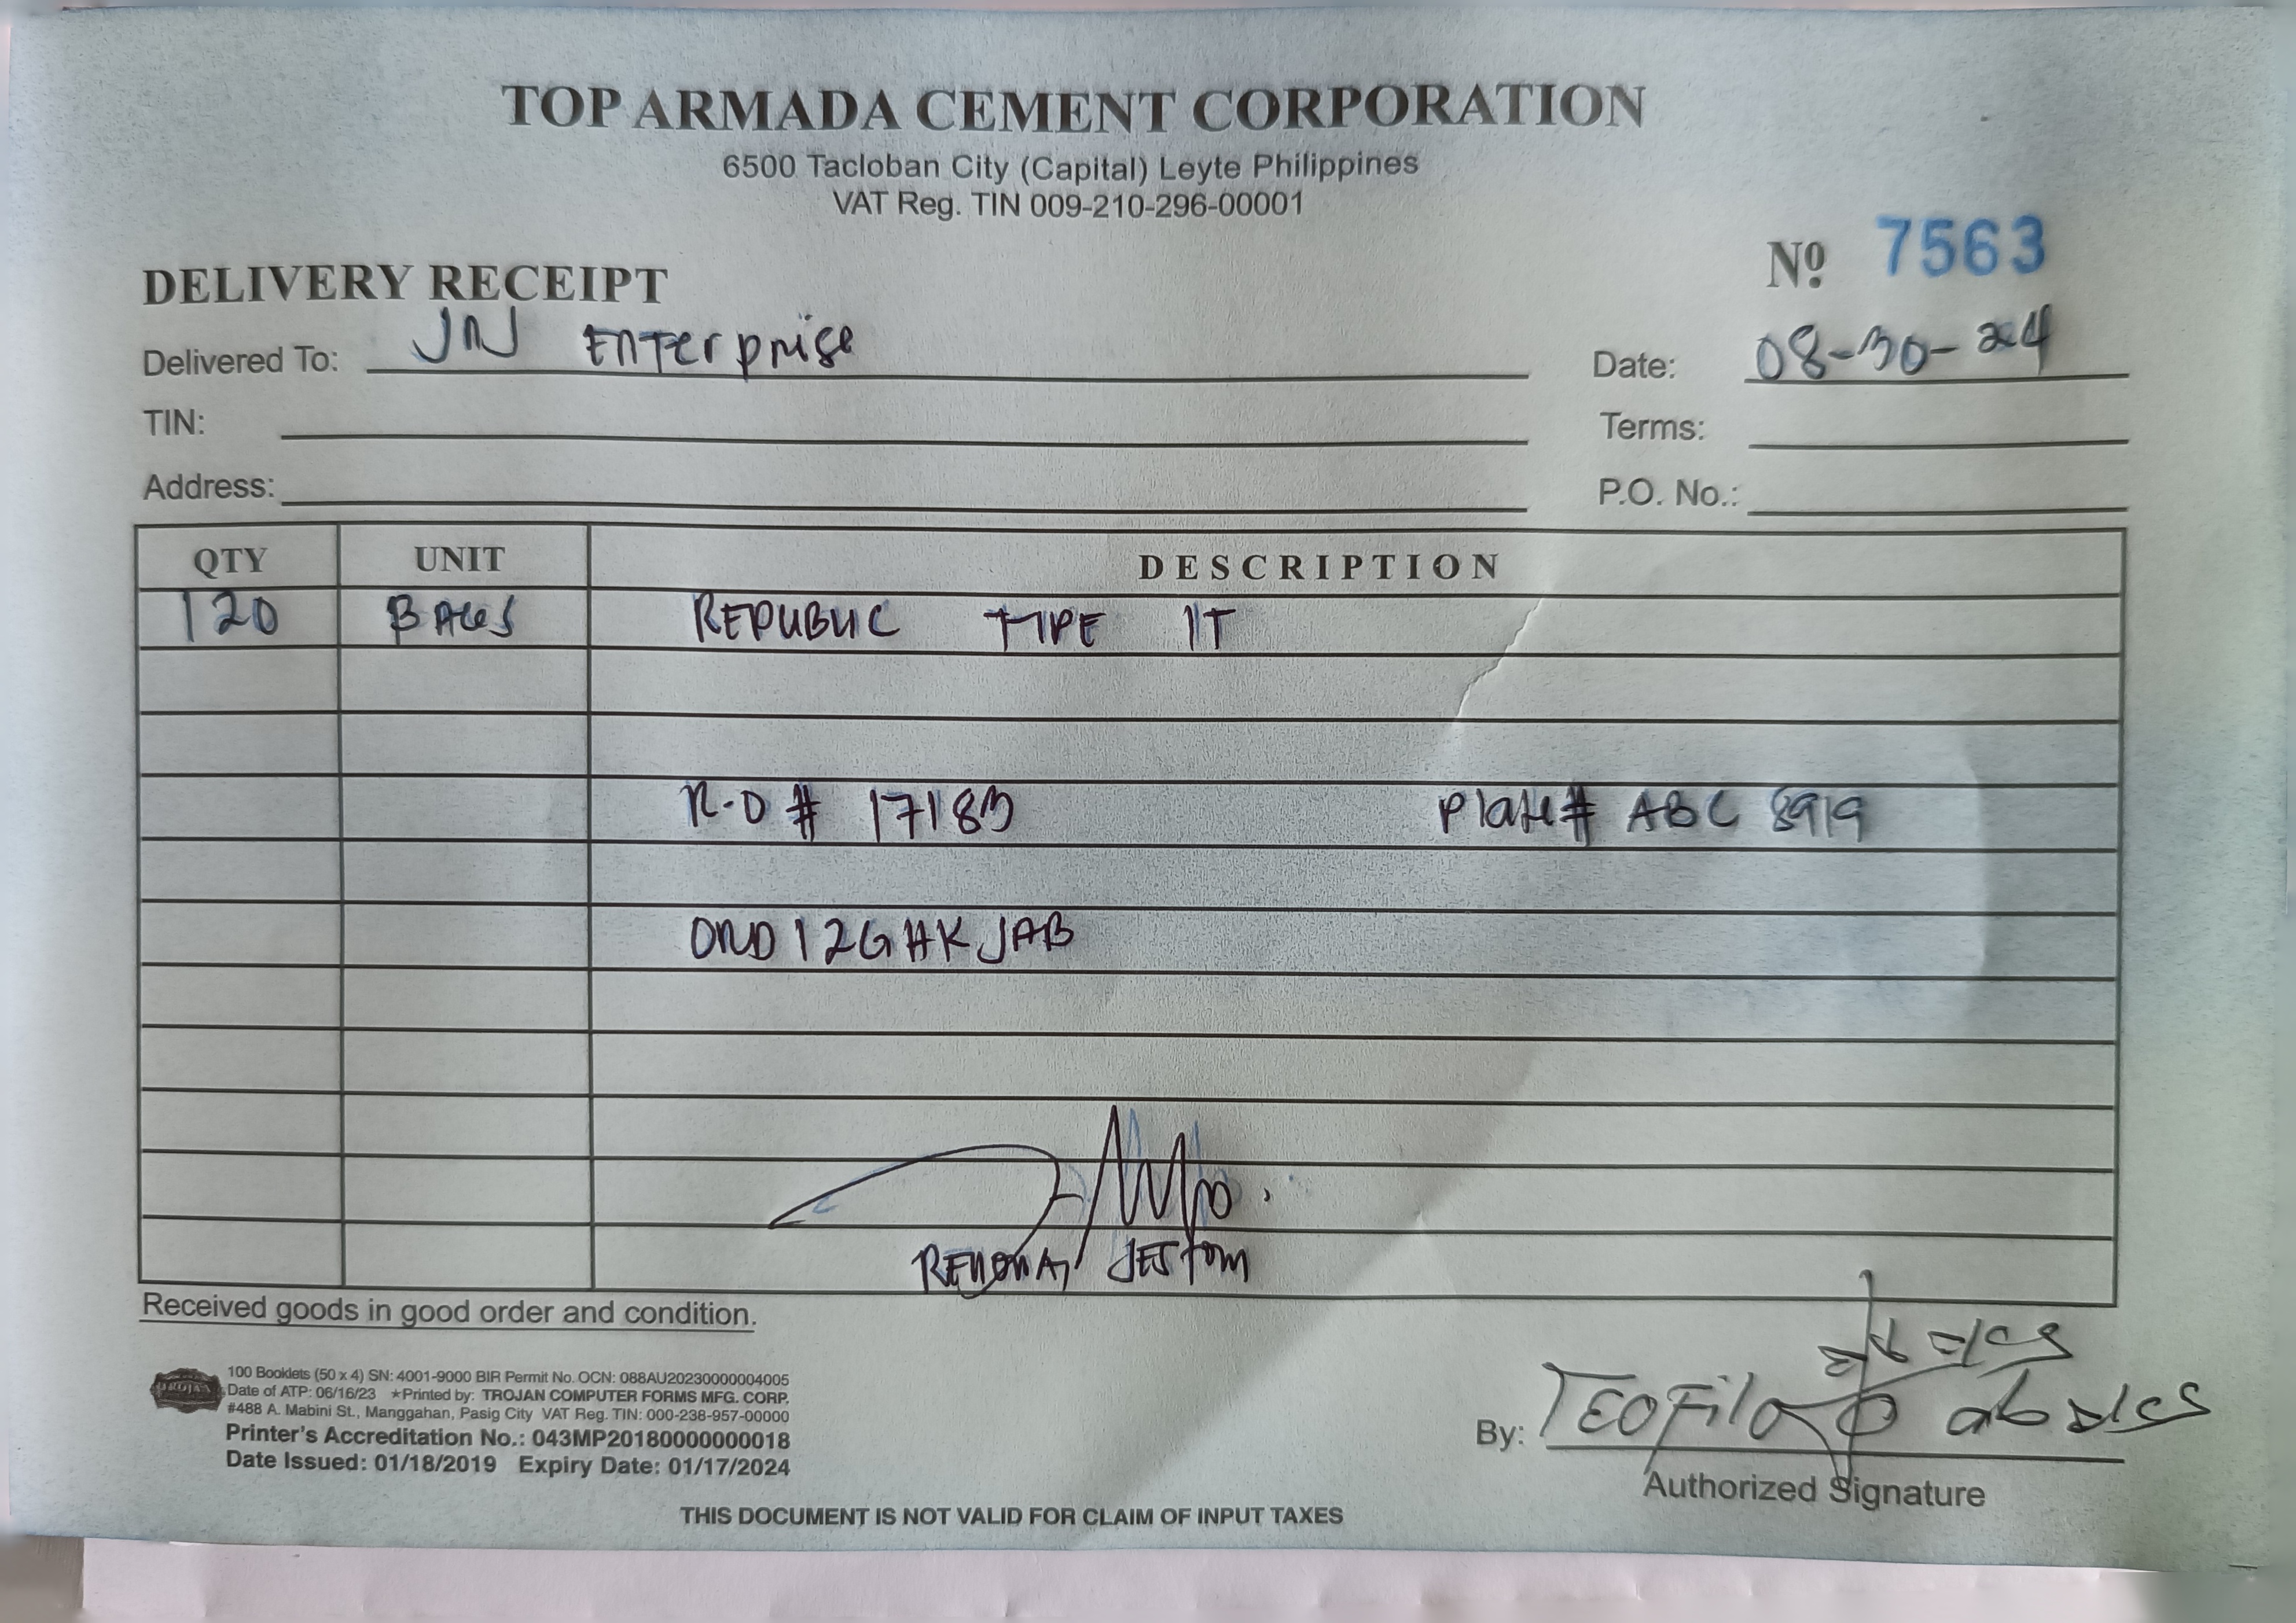 TOP ARMADA CEMENT CORPORATION
6500 Tacloban City (Capital) Leyte Philippines
VAT Reg. TIN 009-210-296-00001
Nº 7563
DELIVERY RECEIPT
Delivered To: JNJ Enterprise Date: 08-30-24
TIN: Terms:
Address: P.O. No.:
QTY UNIT DESCRIPTION
120 BAGS REPUBLIC TYPE 1T
R.O # 17183 Plate# ABC 8919
12GHKJAB
JESTOM
Received goods in good order and condition.
TROJAN
100 Booklets (50 x 4) SN: 4001-9000 BIR Permit No. OCN: 088AU20230000004005
Date of ATP: 06/16/23 ★Printed by: TROJAN COMPUTER FORMS MFG. CORP.
#488 A. Mabini St., Manggahan, Pasig City VAT Reg. TIN: 000-238-957-00000
Printer's Accreditation No.: 043MP20180000000018
Date Issued: 01/18/2019 Expiry Date: 01/17/2024
By: TEOFILO
Authorized Signature
THIS DOCUMENT IS NOT VALID FOR CLAIM OF INPUT TAXES